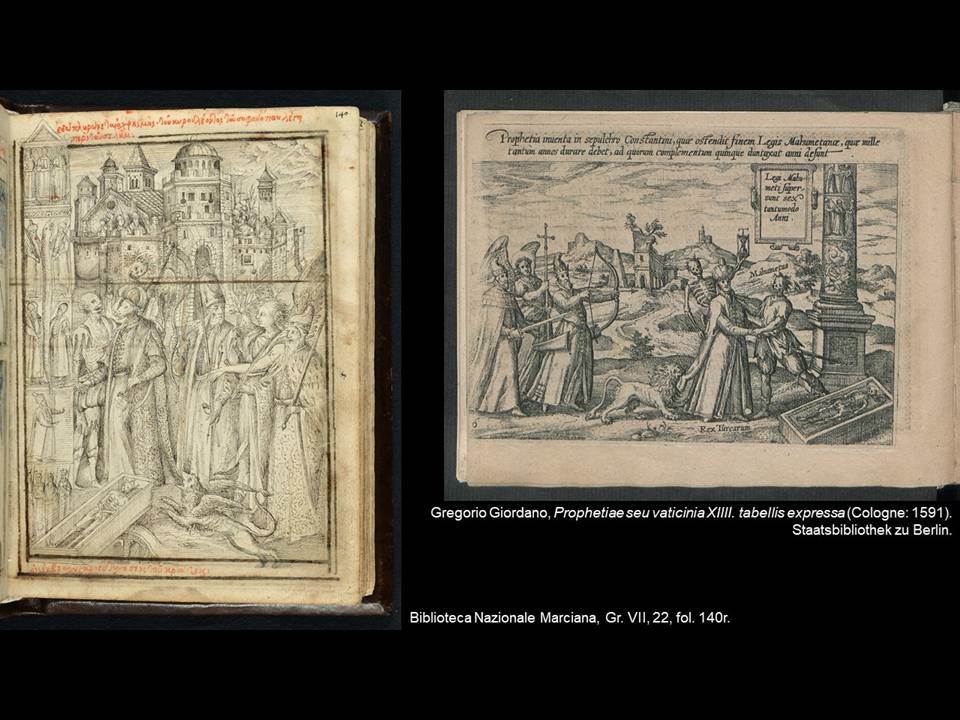 140
Prophetia inuenta in sepulchro Constantini, quæ ostendit finem Legis Mahumetanæ, quæ mille
tantum annos durare debet, ad quorum complementum quinque duntaxat anni desunt
Legi Mahu-
meti super-
sunt sex
tantumodo
Anni.
Mahumetus
Rex Turcarum
Gregorio Giordano, Prophetiae seu vaticinia XIIII. tabellis expressa (Cologne: 1591).
Staatsbibliothek zu Berlin.
Biblioteca Nazionale Marciana, Gr. VII, 22, fol. 140r.